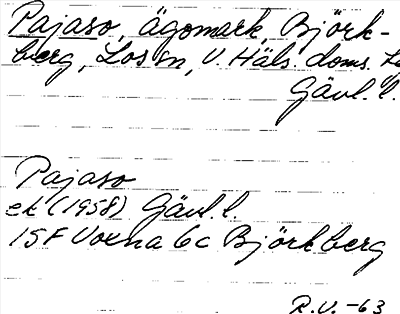 Pajaso, ägomark, Björk-
berg, Los sn, V. Häls. doms.
Gävl. l.
Pajaso
ek (1958) Gävl. l.
15F Voxna 6c Björkberg
R.V. -63